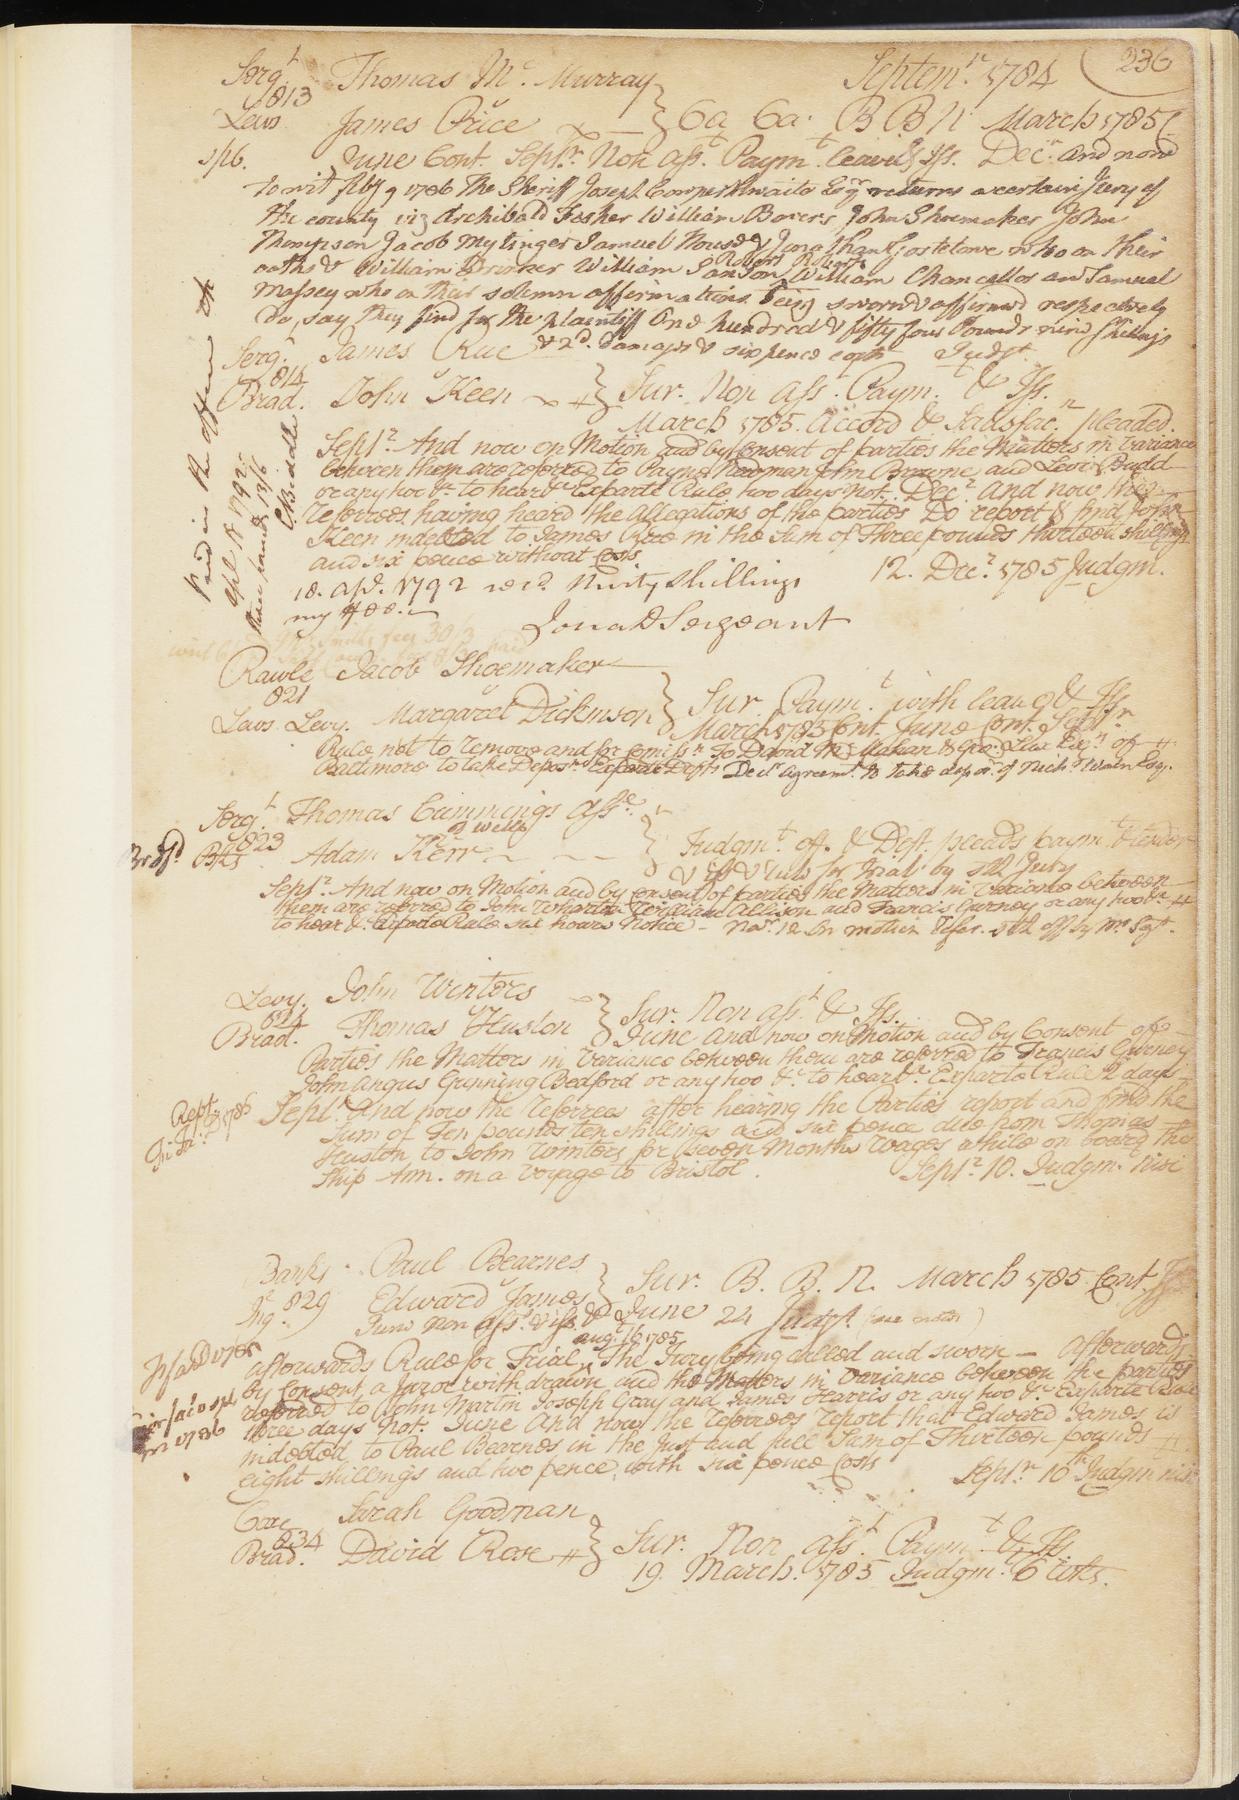 236
Serg.t Thomas Mc. Murray Septemr. 1784
813
Lewis James Price } Ca Ca. B B N March 1785
June Cont. Septr. Non asst. Paymt. leave & Iss. Decr. and now
to wit feby 9 1786 the Sheriff Joseph Cowperthwaite Esqr. returns a certain Jury of
the county viz Archibald Fisher William Bowers John Shoemaker John
Thompson Jacob Mytinger Samuel House & Jonathan who on their
Robert Roberts
oaths & William Brooker William Sanson William Chancellor and Samuel
Massey who on their solemn affirmations being sworn & affirmed respectively
do, say they find for the plaintiff One hundred & fifty four Pounds nine Shillings
& 2d. damages & six pence costs Judgt.
Serg.t James Rae
814
Brad. John Keen } Sur. Non asst. Paymt. & Iss.
March 1785. Accord & Satisfacn. pleaded.
Septr. And now on Motion and by Consent of parties the Matters in variance
between them are referred to Payne Newman John Browne and Levi Budd
or any two &c. to hear &c Exparte Rule two days not. Decr. And now the
Referrees having heard the Allegations of the parties Do report & find John
Keen indebted to James Rae in the Sum of Three pounds thirteen shillings
and six pence without Costs
12. Decr. 1785 Judgm.
18. apl. 1792 recd. Ninty Shillings
my fee.
Jona D Sergeant
paid in the office
apl 18 1792
three pounds 13/6
C. Biddle
Rawle Jacob Shoemaker
821
Lewis Levy. Margaret Dickinson } Sur. Paymt. with leave & Iss
March 1785 Cont. June Cont. Septr
Rule not to remove and for Comissn. To David Mc. Mahan & Geo: of
Baltimore to take Deposn. Exparte Defts Decr. agreemt. to take depon. of Nichs. Waln Esq.
Serg.t Thomas Cummings asse.
of Wells
823
Bradfd Bks Adam Kerr } Judgmt. off. & Deft. pleads paymt. tender
& iss & rule for trial by Jury
Septr. And now on Motion and by consent of parties the Matters in Variance between
them are referred to John Wharton William Allison and Francis Gurney or any two &c
to hear &c. Exparte Rule six hours Notice - Novr. 12 On motion Refer. off by Mr Sergt.
Levy. John Winters
824
Brad. Thomas Huston } Sur. Non asst. & Iss.
June And now on Motion and by Consent of
Parties the Matters in Variance between them are referred to Francis Gurney
John Angus Gunning Bedford or any two &c. to hear &c. Exparte Rule 2 days
Septr. And now the Referrees after hearing the Parties report and find the
Sum of Ten pounds ten shillings and six pence due from Thomas
Huston to John Winters for seven Months Wages while on board the
Ship Ann. on a Voyage to Bristol. Septr. 10. Judgm. nisi
Banks Paul Bearnes
829
Ing. Edward James } Sur. B. B. N. March 1785 Cont.
June Non asst. & iss. & June 24 Judgt. (see note)
aug. 16 1785
afterwards Rule for Trial, The Jury being called and sworn - afterwards
by Consent, a Juror withdrawn and the Matters in Variance between the parties
referred to John Martin Joseph Gray and James Harris or any two &c Exparte Rule
three days Not. June And now the Referrees report that Edward James is
indebted to Paul Bearnes in the just and full Sum of Thirteen pounds
eight shillings and two pence, with six pence Costs Septr. 10th Judgm nisi
Coxe Sarah Goodman
834
Brad. David Rose } Sur. Non asst. Paymt. & Iss.
19. March. 1785 Judgm. 6 Wks.